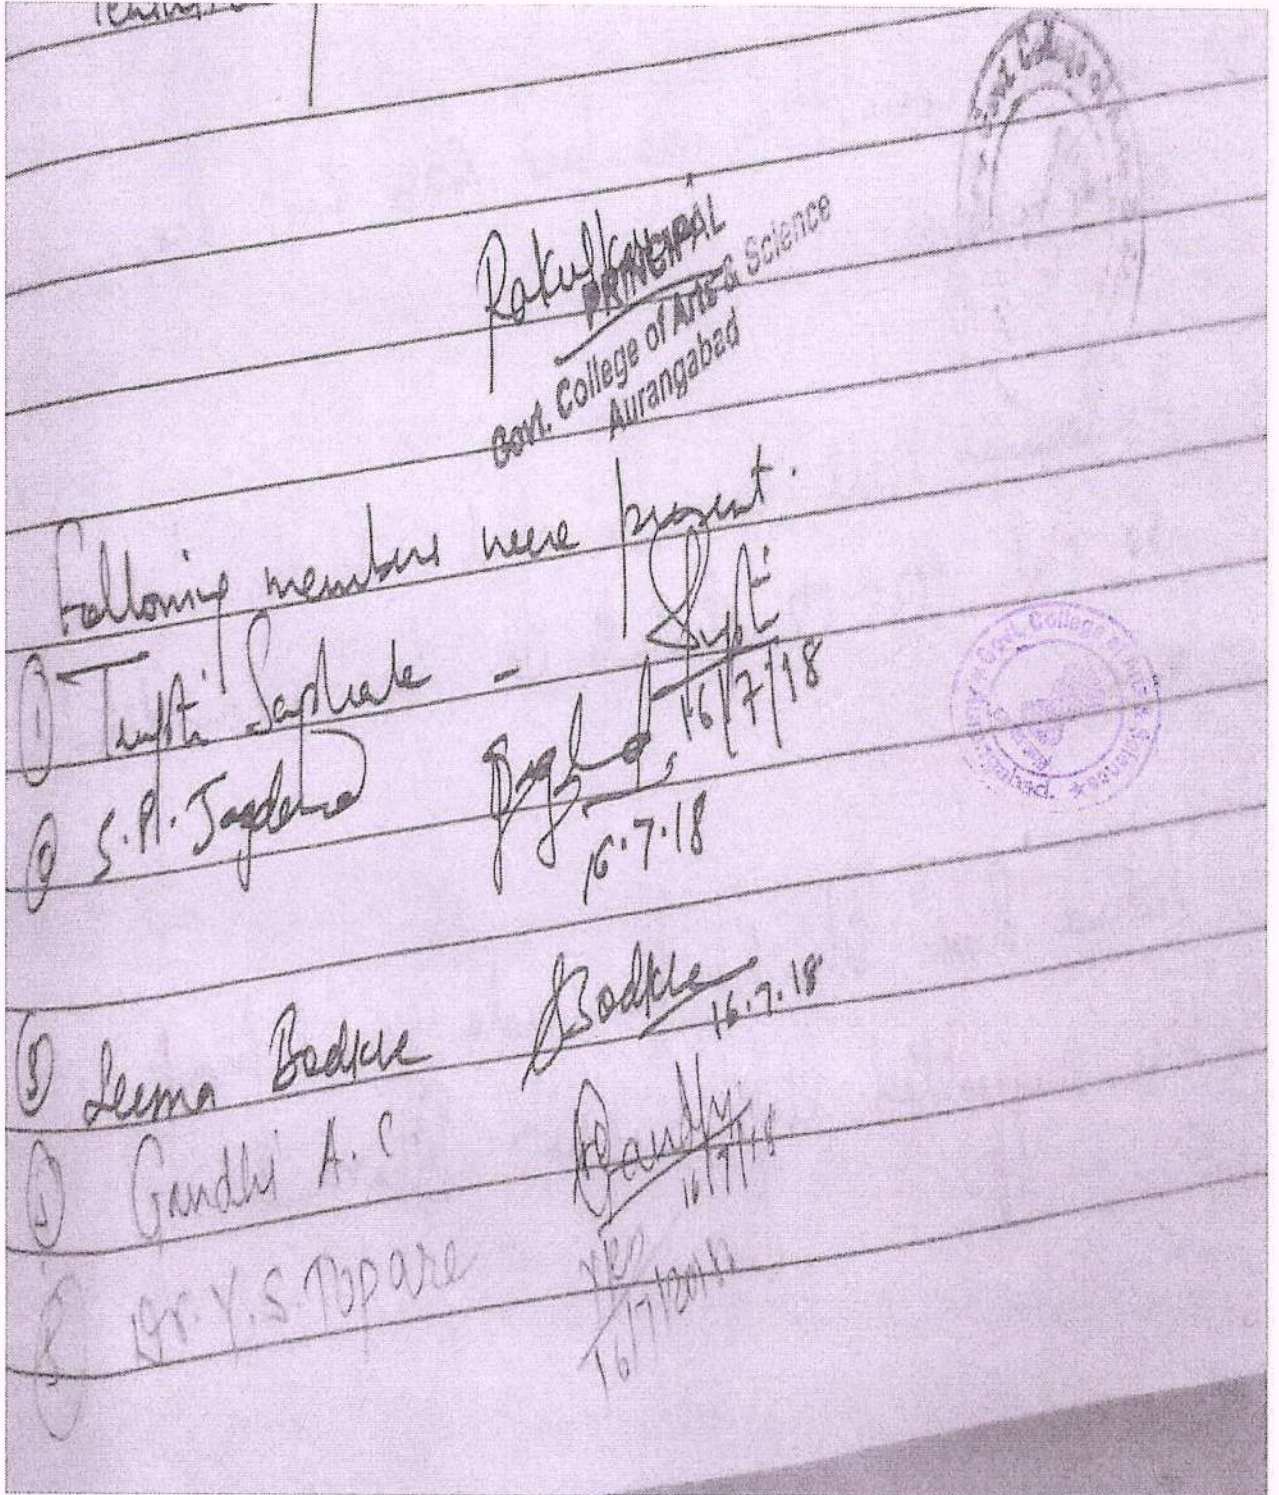 PRINCIPAL
Govt. College of Arts & Science
Aurangabad
Govt. College of
Following members were present.
① Trupti Sapkale - Trupti
16/7/18
② S.P. Jagdand
16.7.18
③ Seema Bodkhe SBodkhe
16.7.18
Gandhi A. C Gandhi
16/7/18
Dr. Y. S. Topare
16/7/2018
Govt. College of Arts & Science